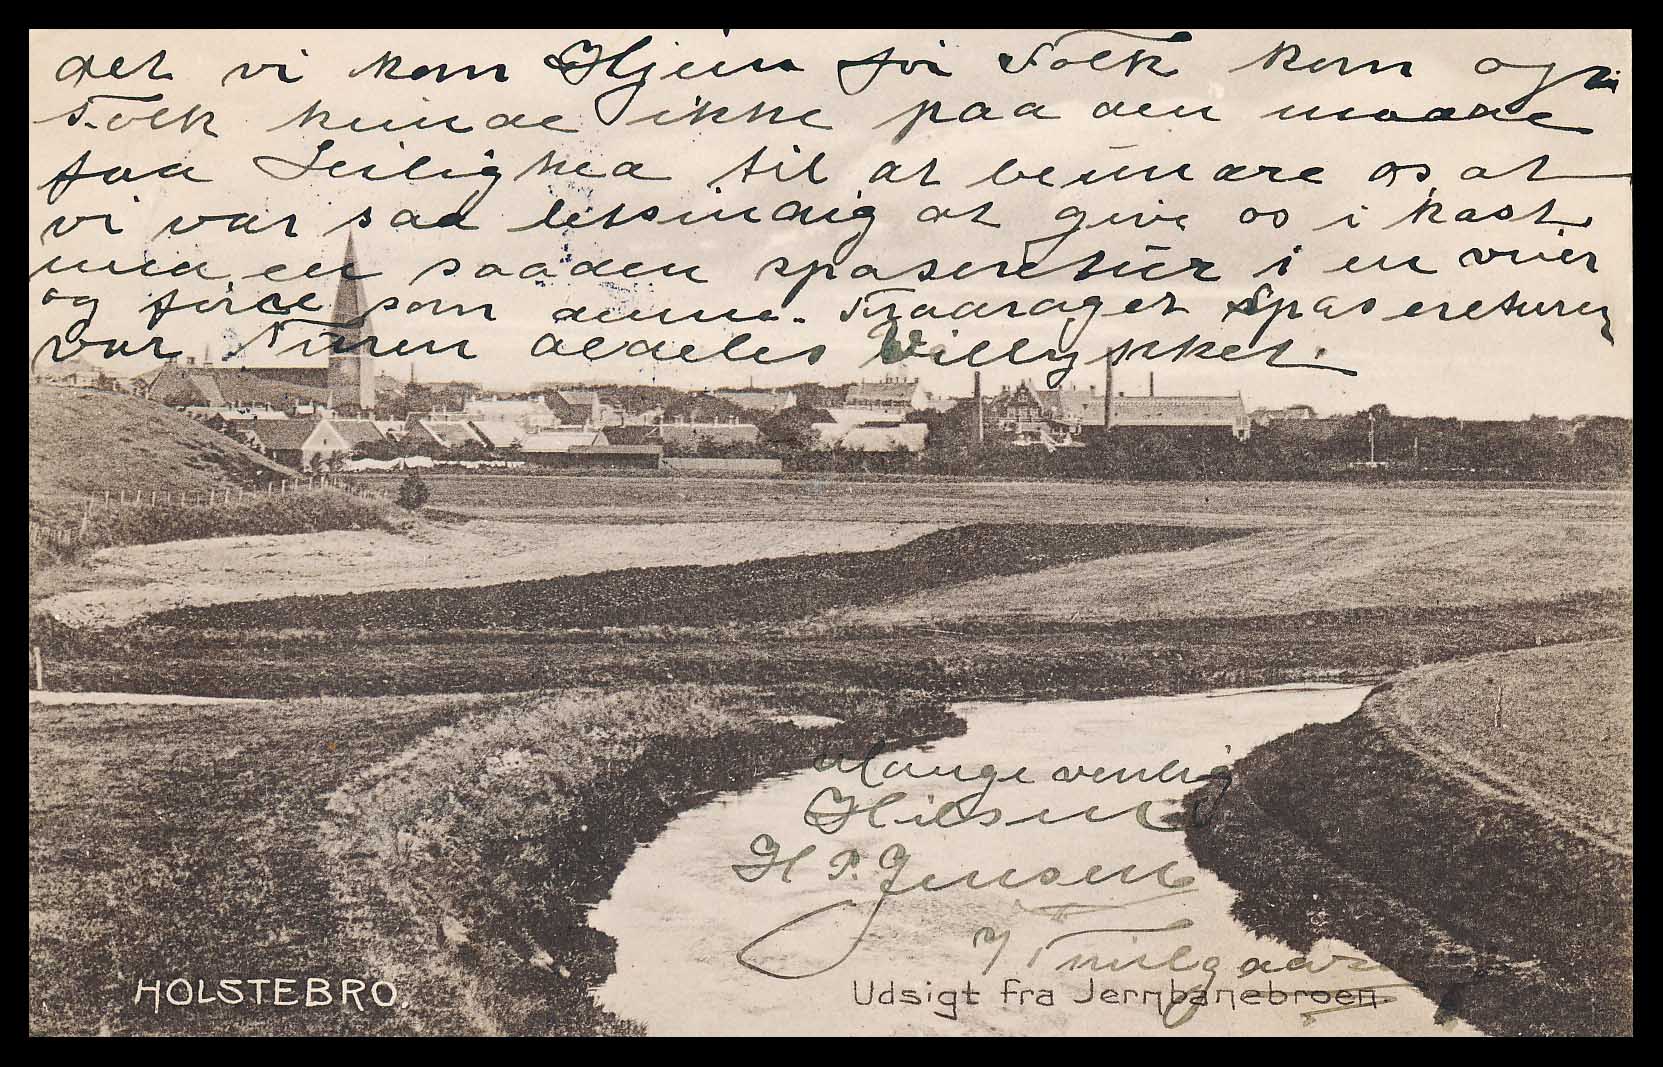 det vi kom Hjem før Folk kom og
Folk kunde ikke paa den maade
faa Leilighed til at beundre os, at
vi var saa letsindig at give os i kast
med en saadan spaseretur i en viér
og føre som denne. Fraadraget Spasereturen
var Turen aldeles Vellykket.
Mange venlig
Hilsen
H P. Jensen
HOLSTEBRO.
Udsigt fra Jernbanebroen